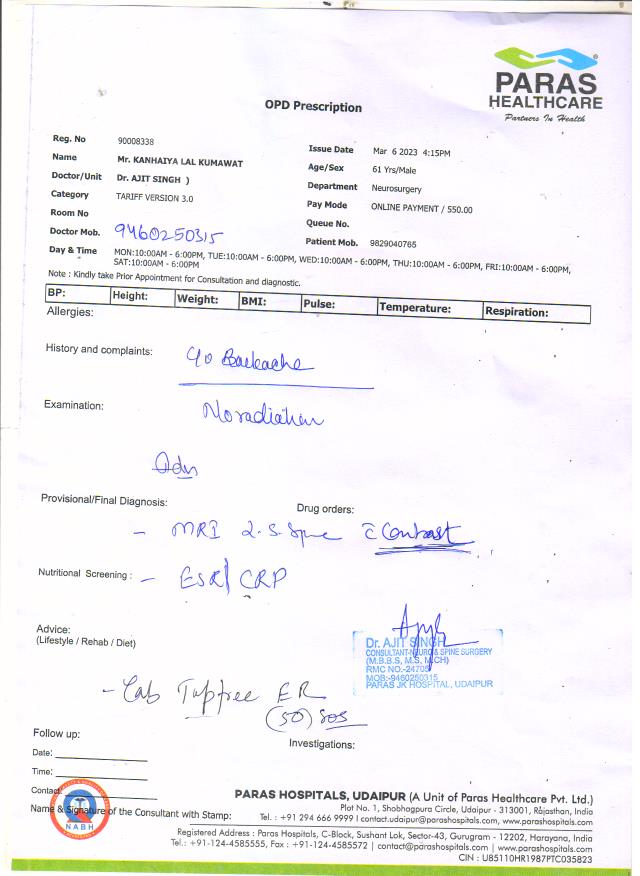 PARAS
HEALTHCARE
Partners In Health
OPD Prescription
Reg. No 90008338
Issue Date Mar 6 2023 4:15PM
Name Mr. KANHAIYA LAL KUMAWAT
Age/Sex 61 Yrs/Male
Doctor/Unit Dr. AJIT SINGH )
Department Neurosurgery
Category TARIFF VERSION 3.0
Pay Mode ONLINE PAYMENT / 550.00
Room No
Queue No.
Doctor Mob. 9460250315
Patient Mob. 9829040765
Day & Time MON:10:00AM - 6:00PM, TUE:10:00AM - 6:00PM, WED:10:00AM - 6:00PM, THU:10:00AM - 6:00PM, FRI:10:00AM - 6:00PM,
SAT:10:00AM - 6:00PM
Note : Kindly take Prior Appointment for Consultation and diagnostic.
BP: Height: Weight: BMI: Pulse: Temperature: Respiration:
Allergies:
History and complaints: c/o Backache
Examination: No radiation
Adv
Provisional/Final Diagnosis: Drug orders:
- MRI L.S. Spine c̄ Contrast
Nutritional Screening : - ESR/CRP
Advice:
(Lifestyle / Rehab / Diet)
Dr. AJIT SINGH
CONSULTANT-NEURO & SPINE SURGERY
(M.B.B.S, M.S, M.CH)
RMC NO.-24705
MOB:-9460250315
PARAS JK HOSPITAL, UDAIPUR
- Tab ER
(50) SOS
Follow up: Investigations:
Date:
Time:
Contact:
Name & Signature of the Consultant with Stamp:
NABH
PARAS HOSPITALS, UDAIPUR (A Unit of Paras Healthcare Pvt. Ltd.)
Plot No. 1, Shobhagpura Circle, Udaipur - 313001, Rajasthan, India
Tel. : +91 294 666 9999 I contact.udaipur@parashospitals.com, www.parashospitals.com
Registered Address : Paras Hospitals, C-Block, Sushant Lok, Sector-43, Gurugram - 12202, Harayana, India
Tel.: +91-124-4585555, Fax : +91-124-4585572 | contact@parashospitals.com | www.parashospitals.com
CIN : U85110HR1987PTC035823